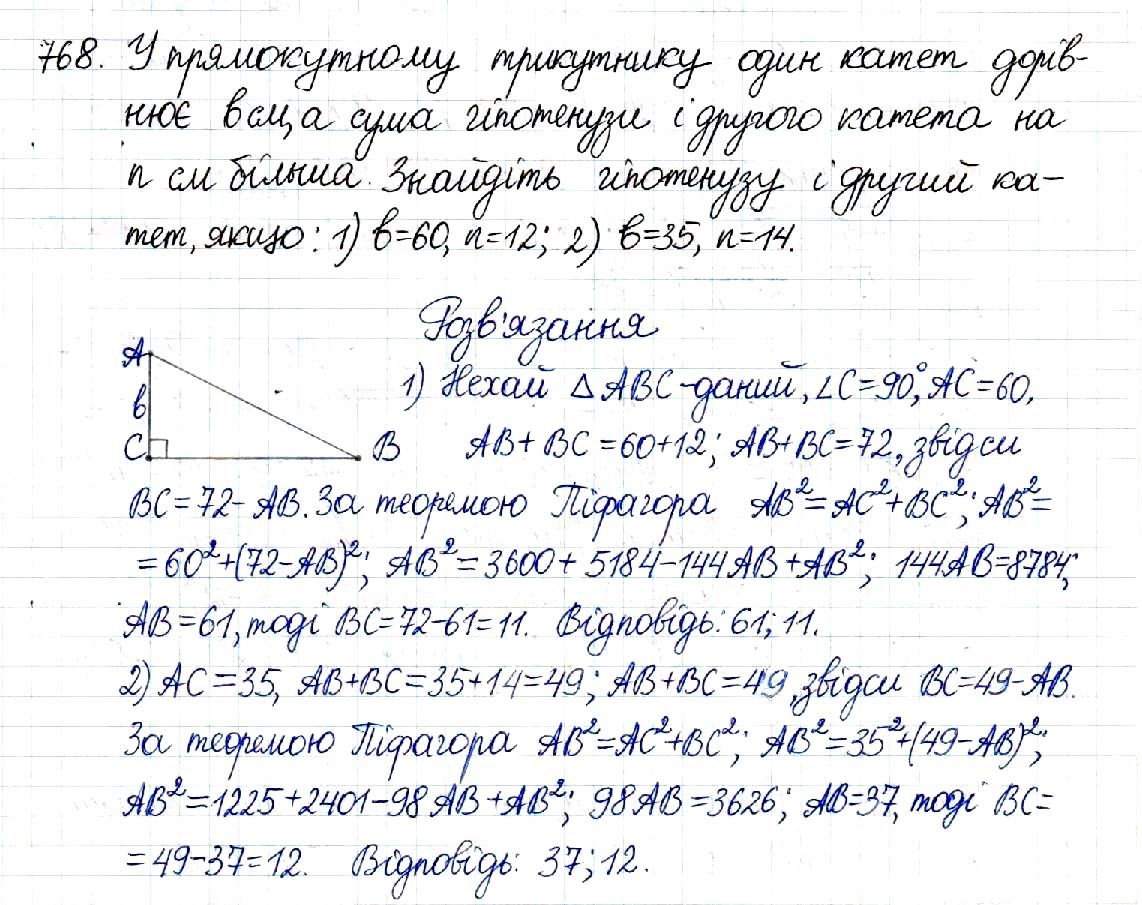 768. У прямокутному трикутнику один катет дорів-
нює в см, а сума гіпотенузи і другого катета на
n см більша. Знайдіть гіпотенузу і другий ка-
тет, якщо: 1) в=60, n=12; 2) в=35, n=14.
Розв'язання
A
в
C
B
1) Нехай △ABC-даний, ∠C=90°, AC=60,
AB+BC=60+12; AB+BC=72, звідси
BC=72-AB. За теоремою Піфагора AB²=AC²+BC²; AB²=
=60²+(72-AB)²; AB²=3600+5184-144AB+AB²; 144AB=8784;
AB=61, тоді BC=72-61=11. Відповідь: 61; 11.
2) AC=35, AB+BC=35+14=49; AB+BC=49, звідси BC=49-AB.
За теоремою Піфагора AB²=AC²+BC²; AB²=35²+(49-AB)²;
AB²=1225+2401-98AB+AB²; 98AB=3626; AB=37, тоді BC=
=49-37=12. Відповідь: 37; 12.